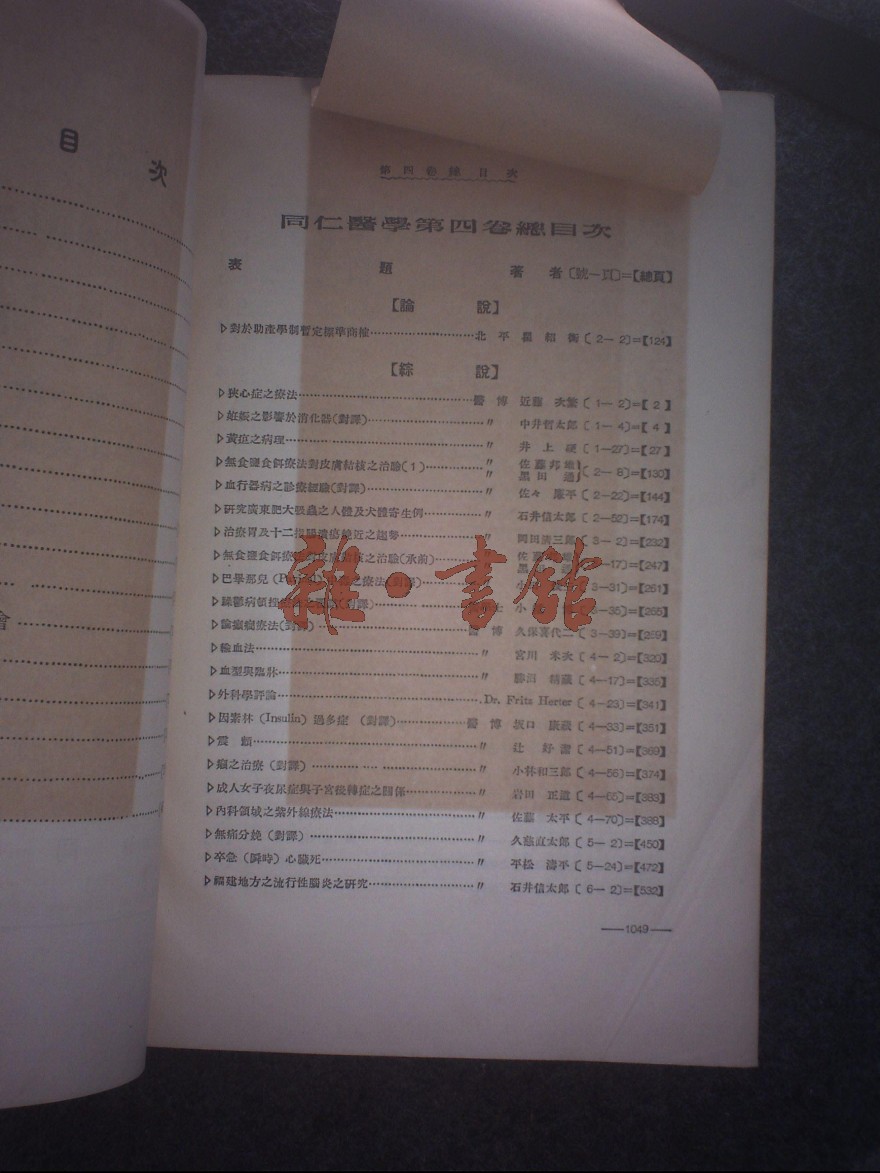 目次
會
第四卷總目次
同仁醫學第四卷總目次
表題 著者〔號—頁〕=【總頁】
【論說】
▷對於助產學制暫定標準商榷 北平 〔2—2〕=【124】
【綜說】
▷狹心症之療法 醫博 近藤 次繁〔1—2〕=【2】
▷姙娠之影響於消化器(對譯) 〃 中井哲太郎〔1—4〕=【4】
▷黃疸之病理 〃 井上 硬〔1—27〕=【27】
▷無食鹽食餌療法對皮膚結核之治驗(1) 〃 佐藤邦雄
〃 黑田 〔2—8〕=【130】
▷血行器病之診療經驗(對譯) 〃 佐々 廉平〔2—22〕=【144】
▷研究廣東肥大吸蟲之人體及犬體寄生例 〃 石井信太郎〔2—52〕=【174】
▷治療胃及十二指腸潰瘍晚近之趨勢 〃 岡田清三郎〔3—2〕=【232】
▷無食鹽食餌療法對皮膚結核之治驗(承前) 〃 佐藤 —17〕=【247】
▷巴畢那兒 之療法(對譯) 小 —31〕=【261】
病 (對譯) 士 小 —35〕=【265】
▷論癲癇療法(對譯) 醫博 久保喜代二〔3—39〕=【269】
▷輸血法 〃 宮川 米次〔4—2〕=【320】
▷血型與臨牀 〃 勝沼 精藏〔4—17〕=【335】
▷外科學評論 Dr. Fritz Herter〔4—23〕=【341】
▷因素林(Insulin)過多症(對譯) 醫博 坂口 康藏〔4—33〕=【351】
▷震顫 〃 辻 〔4—51〕=【369】
▷癩之治療(對譯) 〃 小林和三郎〔4—56〕=【374】
▷成人女子夜尿症與子宮後轉症之關係 〃 岩田 正道〔4—65〕=【383】
▷內科領域之紫外線療法 〃 佐藤 太平〔4—70〕=【388】
▷無痛分娩(對譯) 〃 久慈直太郎〔5—2〕=【450】
▷卒急(瞬時)心臟死 〃 平松 濤平〔5—24〕=【472】
▷福建地方之流行性腦炎之研究 〃 石井信太郎〔6—2〕=【532】
—1049—
雜·書館